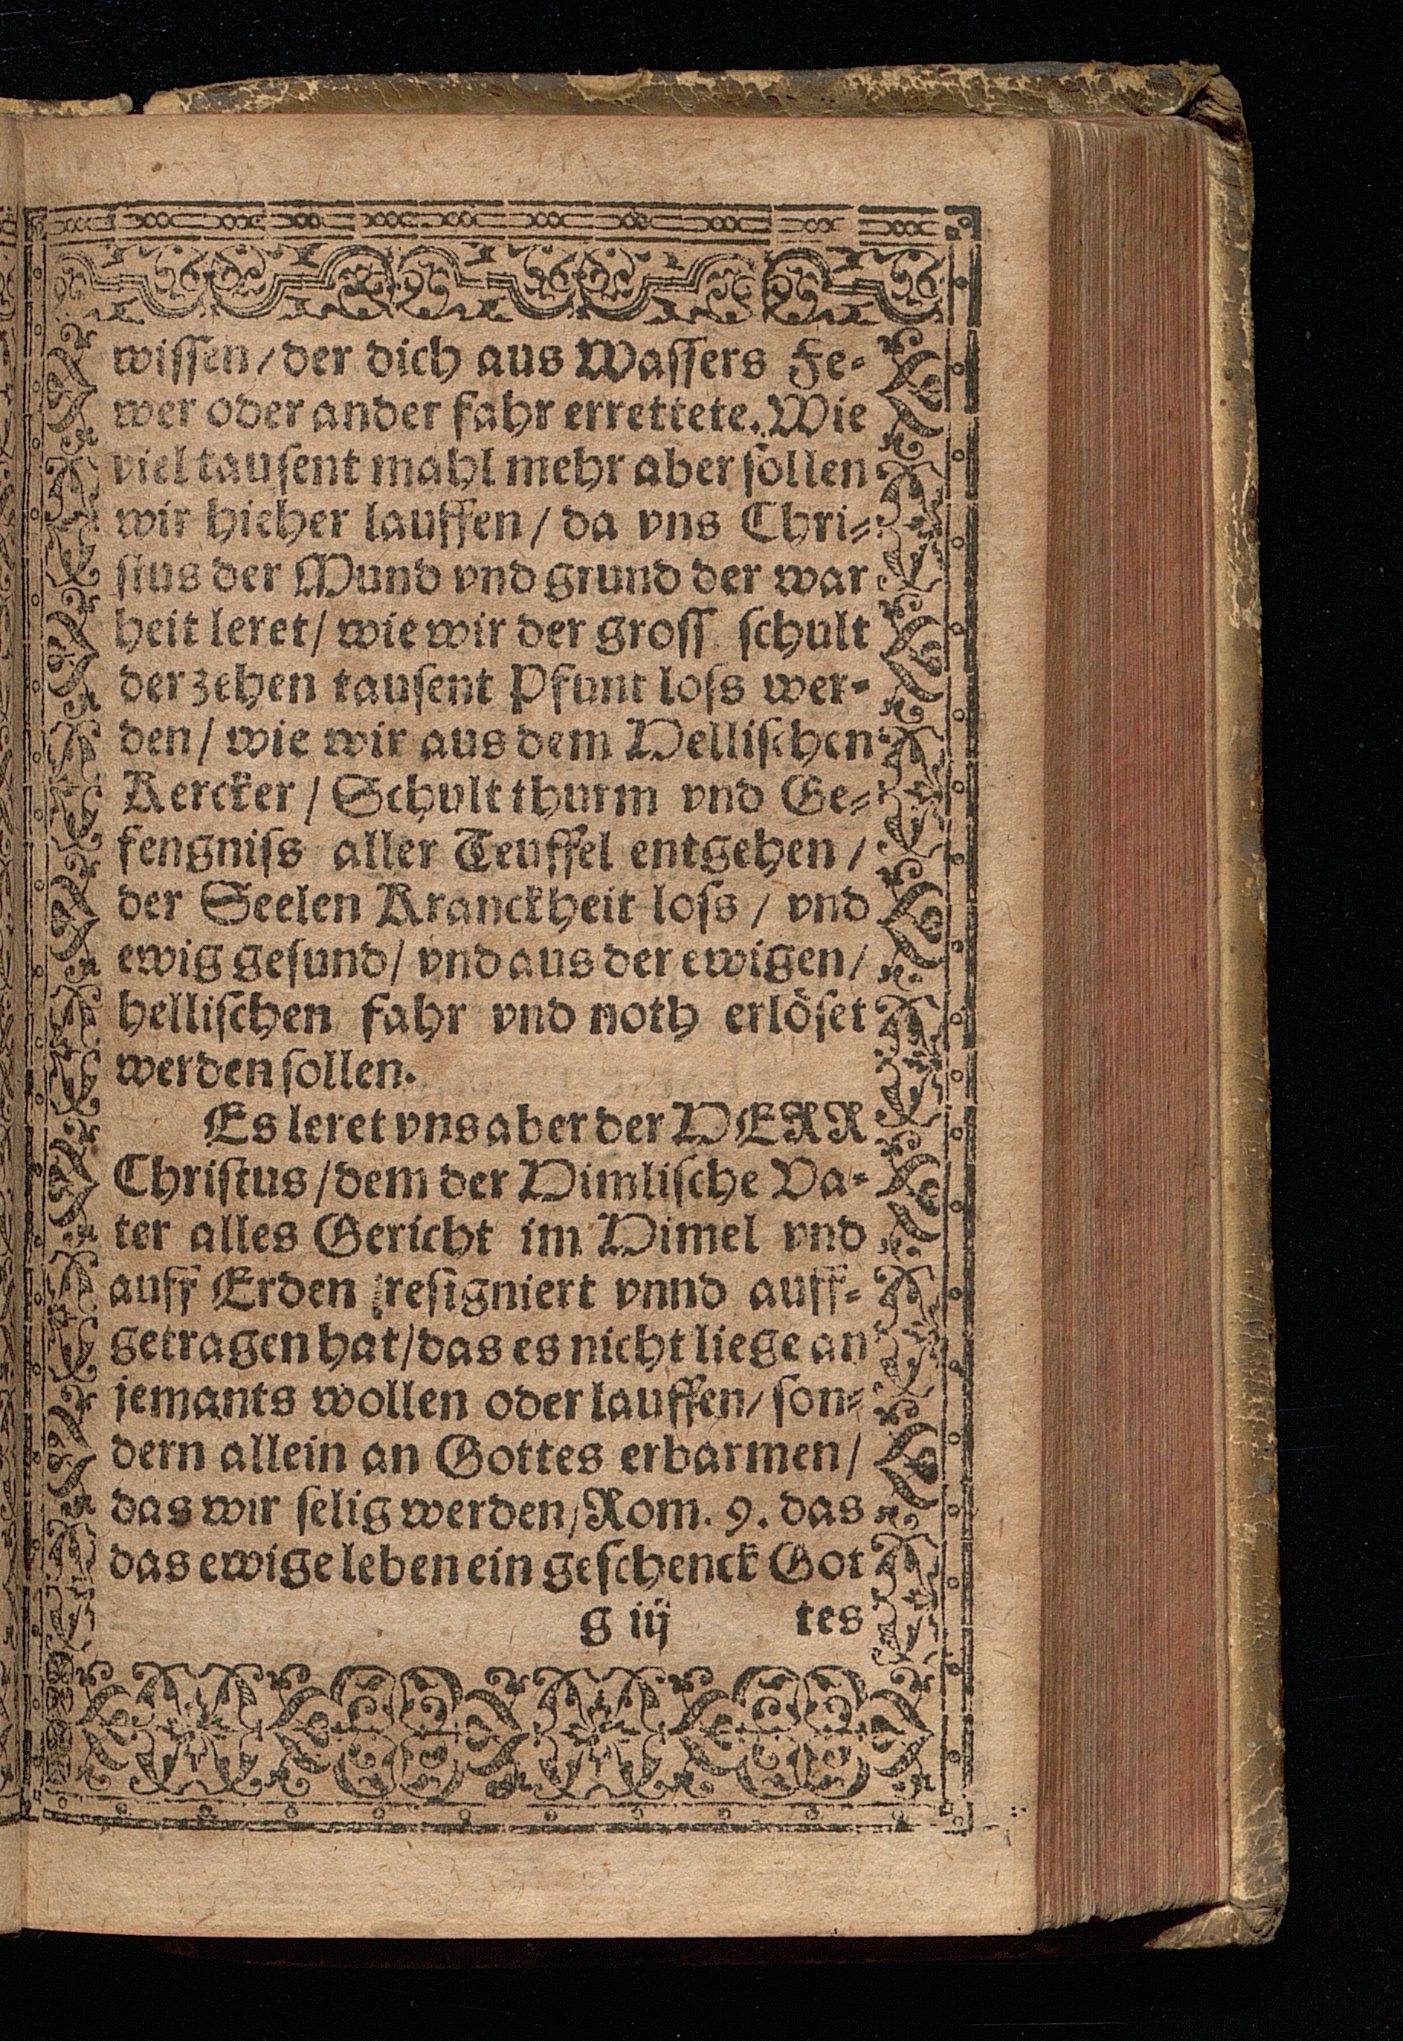 wissen/der dich aus Wassers Fe-
wer oder ander fahr errettete. Wie
viel tausent mahl mehr aber sollen
wir hieher lauffen / da vns Chri-
stus der Mund vnd grund der war
heit leret/ wie wir der gross schult
der zehen tausent Pfunt loss wer-
den / wie wir aus dem Hellischen
Kercker / Schult thurm vnd Ge-
fengniss aller Teuffel entgehen /
der Seelen Kranckheit loss / vnd
ewig gesund/ vnd aus der ewigen/
hellischen fahr vnd noth erlöset
werden sollen.
Es leret vns aber der HERR
Christus /dem der Himlische Va-
ter alles Gericht im Himel vnd
auff Erden resigniert vnnd auff-
getragen hat/das es nicht liege an
jemants wollen oder lauffen/ son-
dern allein an Gottes erbarmen/
das wir selig werden/Rom. 9. das
das ewige leben ein geschenck Got
g iij tes